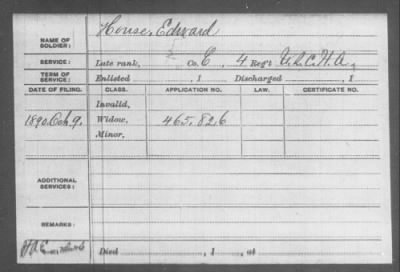 NAME OF SOLDIER: House, Edward
SERVICE: Late rank, Co. C, 4 Reg't U.S.C.H.A.
TERM OF SERVICE: Enlisted , 1 Discharged , 1
DATE OF FILING. CLASS. APPLICATION NO. LAW. CERTIFICATE NO.
Invalid,
1890 Oct. 9. Widow, 465.826
Minor,
ADDITIONAL SERVICES:
REMARKS:
Died , 1 , at